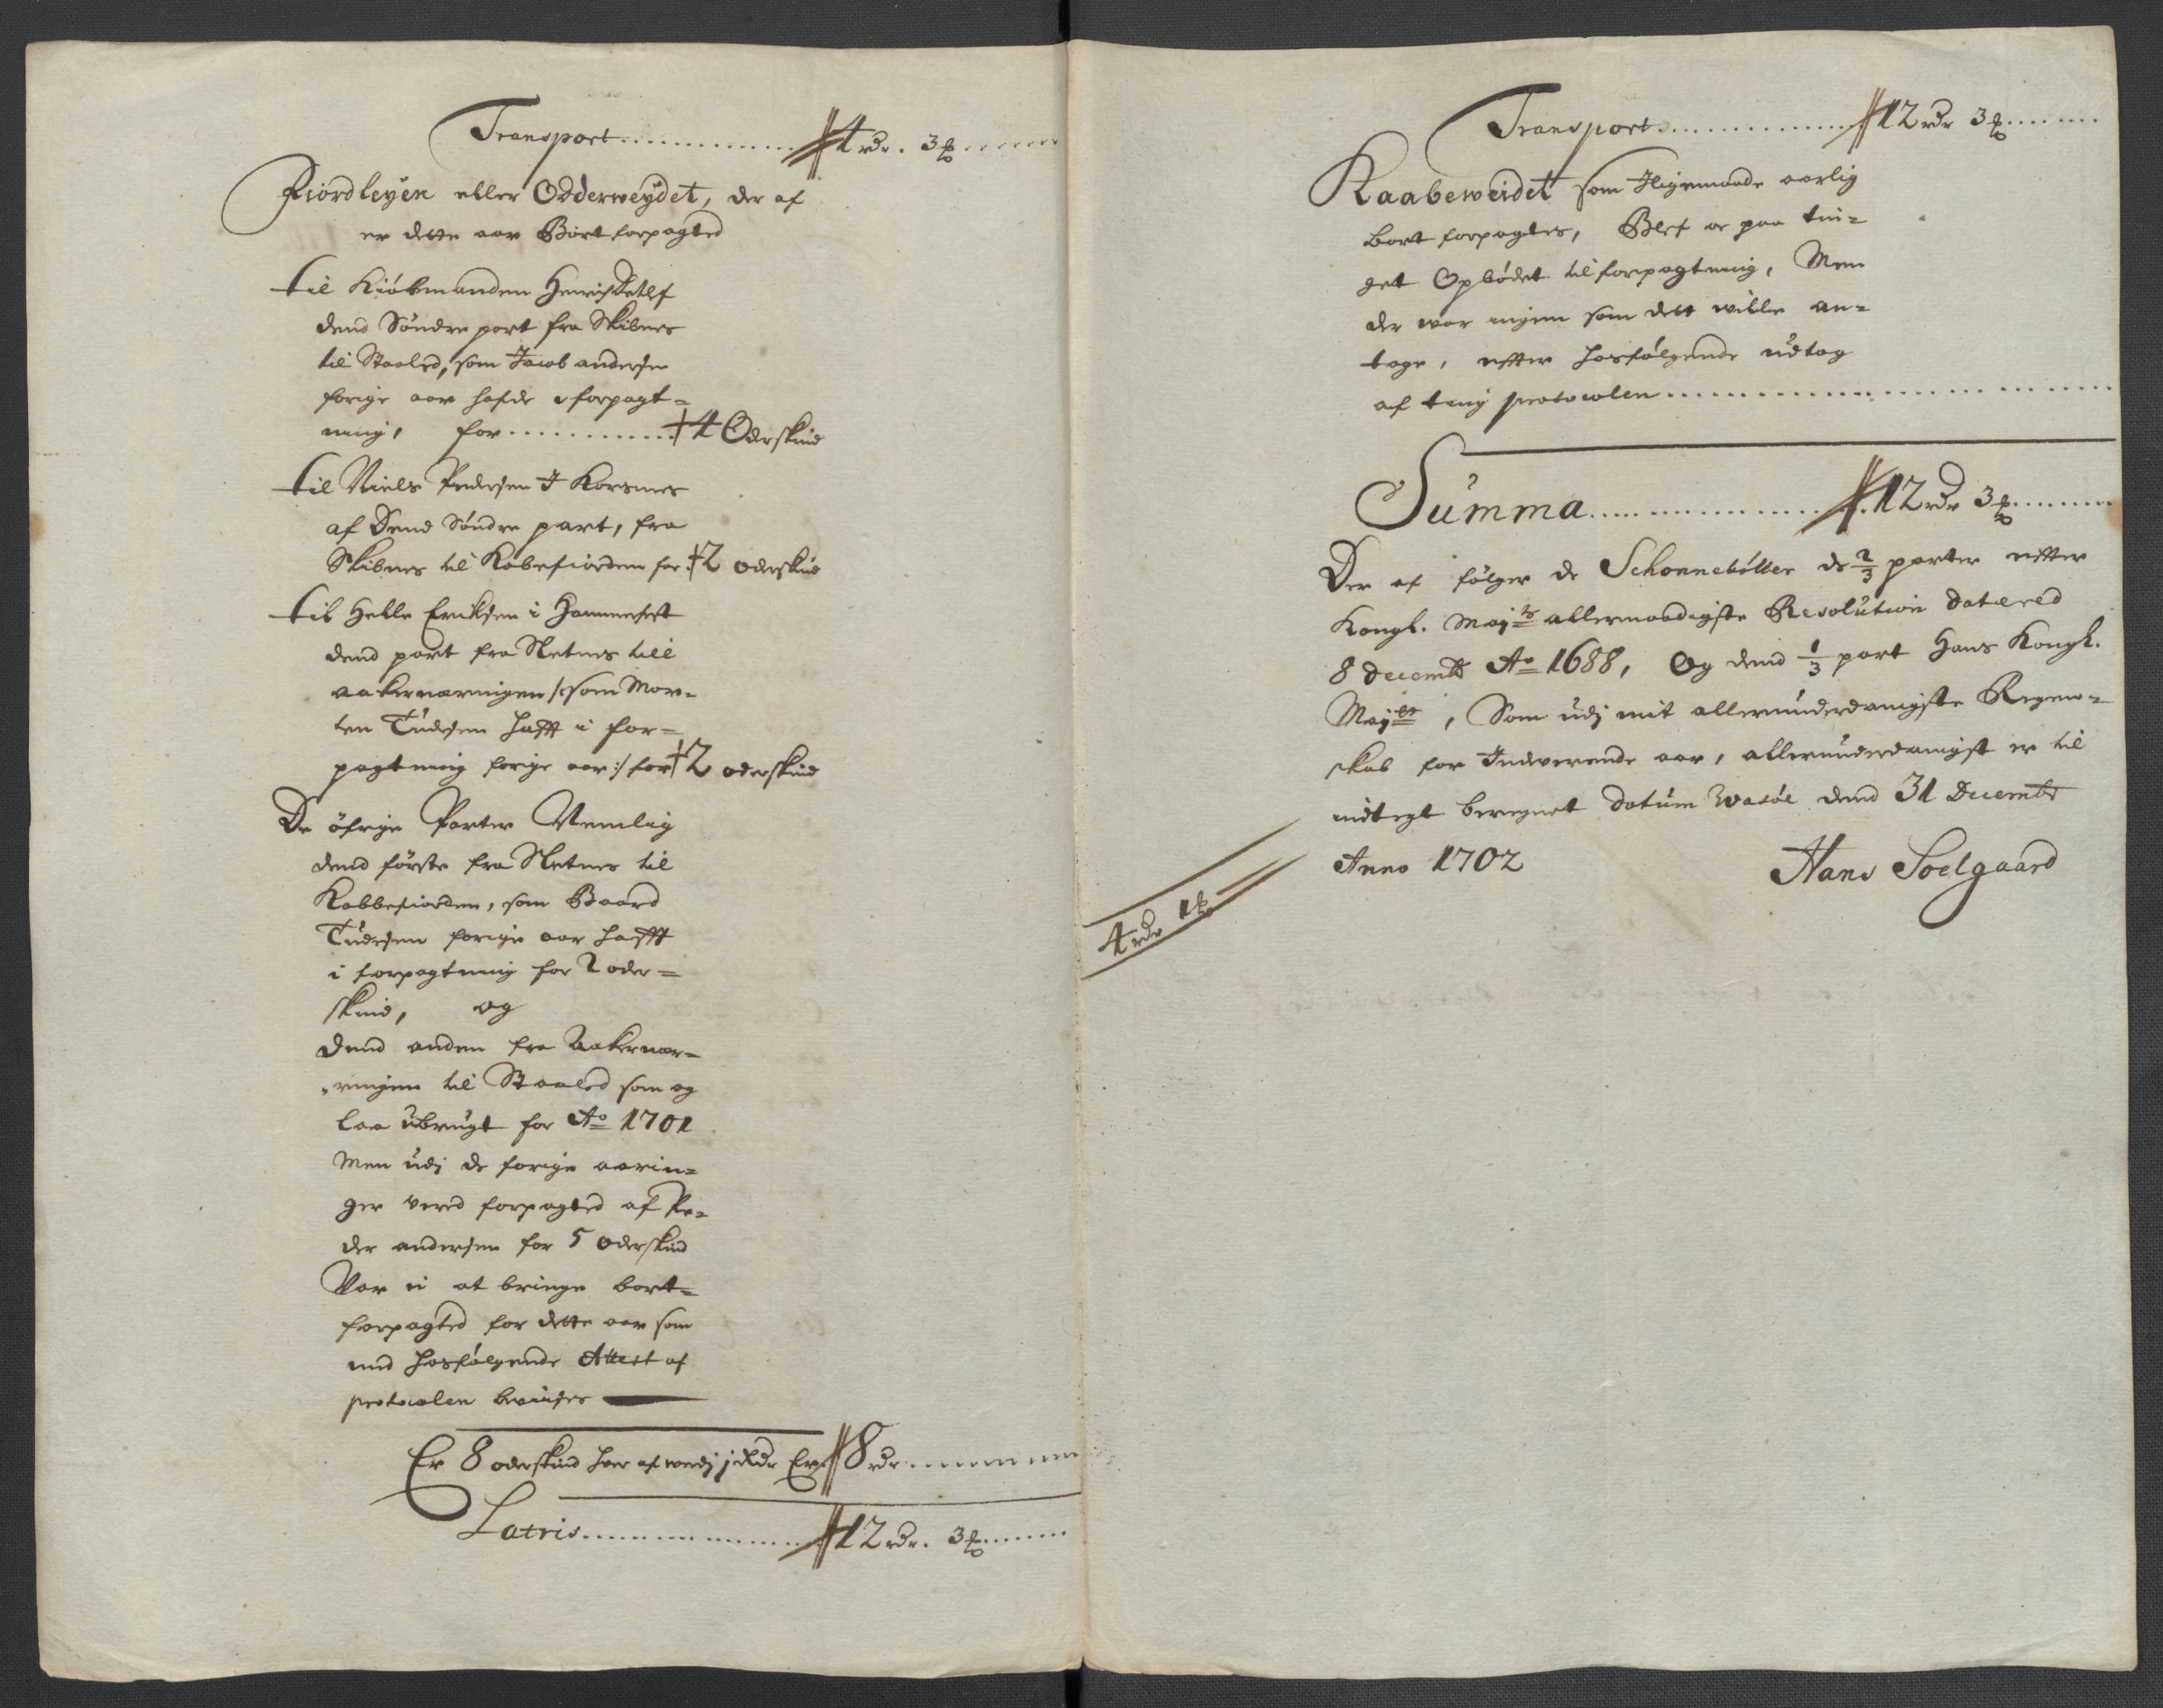 Transport ............... 4 rdr. 3 ß ......
Fiordleyen eller Odderweydet, der af
er dette aar Bortforpagted
til Kiöbmanden Henrich Detlf
dend Söndre part fra Skibnes
til Staaled, som Jacob andersen
forige aar hafde i forpagt-
ning, for ............ 4 Oderskind
til Niels Pedersen I Korsnes
af Dend Söndre part, fra
Skibnes til Kobefiorden for 2 oderskind
til Helle Eriksen i Hammerfest
dend part fra Sletnes till
aakernæringen /: som Mor-
ten Tudesen hafft i for-
pagtning forige aar :/ for 2 oderskind
De öfrige Parter Nemlig
dend förste fra Sletnes til
Kobbefiorden, som Baard
Tudesen forige aar hafft
i forpagtning for 2 oder-
skind, og
dend anden fra Aakernær-
ringen til Staaled som og
laa ubrugt for Ao 1701
Men udj de forige aarin-
ger vered forpagted af Pe-
der andersen for 5 oderskind
Var ei at bringe bort-
forpagted for dette aar som
med hosfölgende Attest af
protocolen bevises
Er 8 oderskind hver af werdj j Rdr Er 8 rdr ..........
Latris ............... 12 rdr. 3 ß .......
Transport ............... 12 rdr 3 ß ........
Kaabeweidet som Iligemaade aarlig
bort forpagtes, Blef oc paa tin-
get Opbödet til forpagtning, Men
der war ingen som dett wille an-
tage, effter hosfölgende udtog
af ting protocolen ..............................
Summa ............... 12 rdr 3 ß ........
Der af fölger de Schonneböller de 2/3 parter effter
Kongl. Maj:ts allernaadigste Resolution dateered
8 decembr Ao 1688, Og dend 1/3 part Hans Kongl.
Maj:ts, Som udj mit allerunderdanigste Regen-
skab for Indewerende aar, allerunderdanigst er til
indtegt beregnet datum Wasöe dend 31 Decembr
Anno 1702 Hans Soelgaard
4 rdr 1 ß